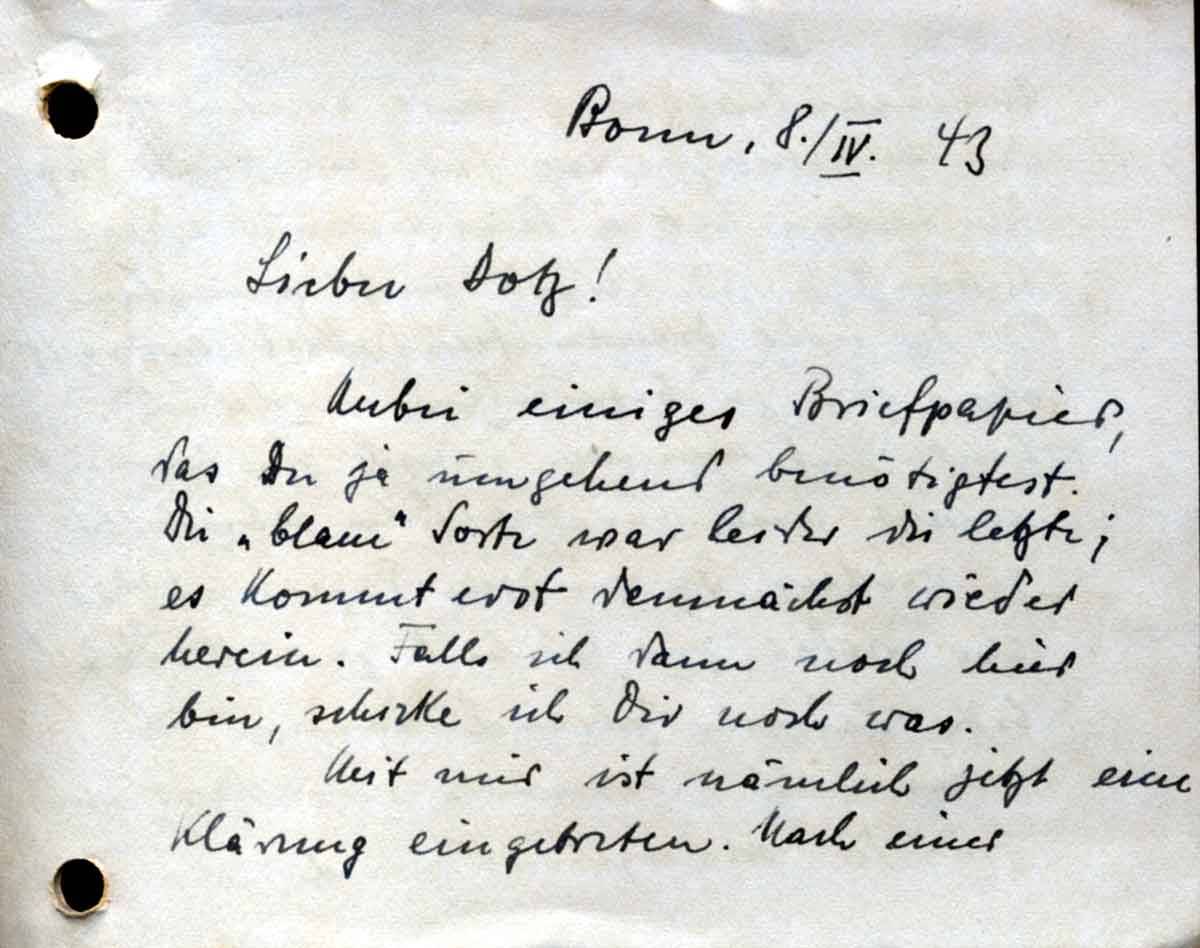 Bonn, 8./IV. 43
Lieber Dotz!
Anbei einiges Briefpapier,
das Du ja umgehend benötigtest.
Die „blaue" Sorte war leider die letzte;
es kommt erst demnächst wieder
herein. Falls ich dann noch hier
bin, schicke ich Dir noch was.
Mit mir ist nämlich jetzt eine
Klärung eingetreten. Nach einer